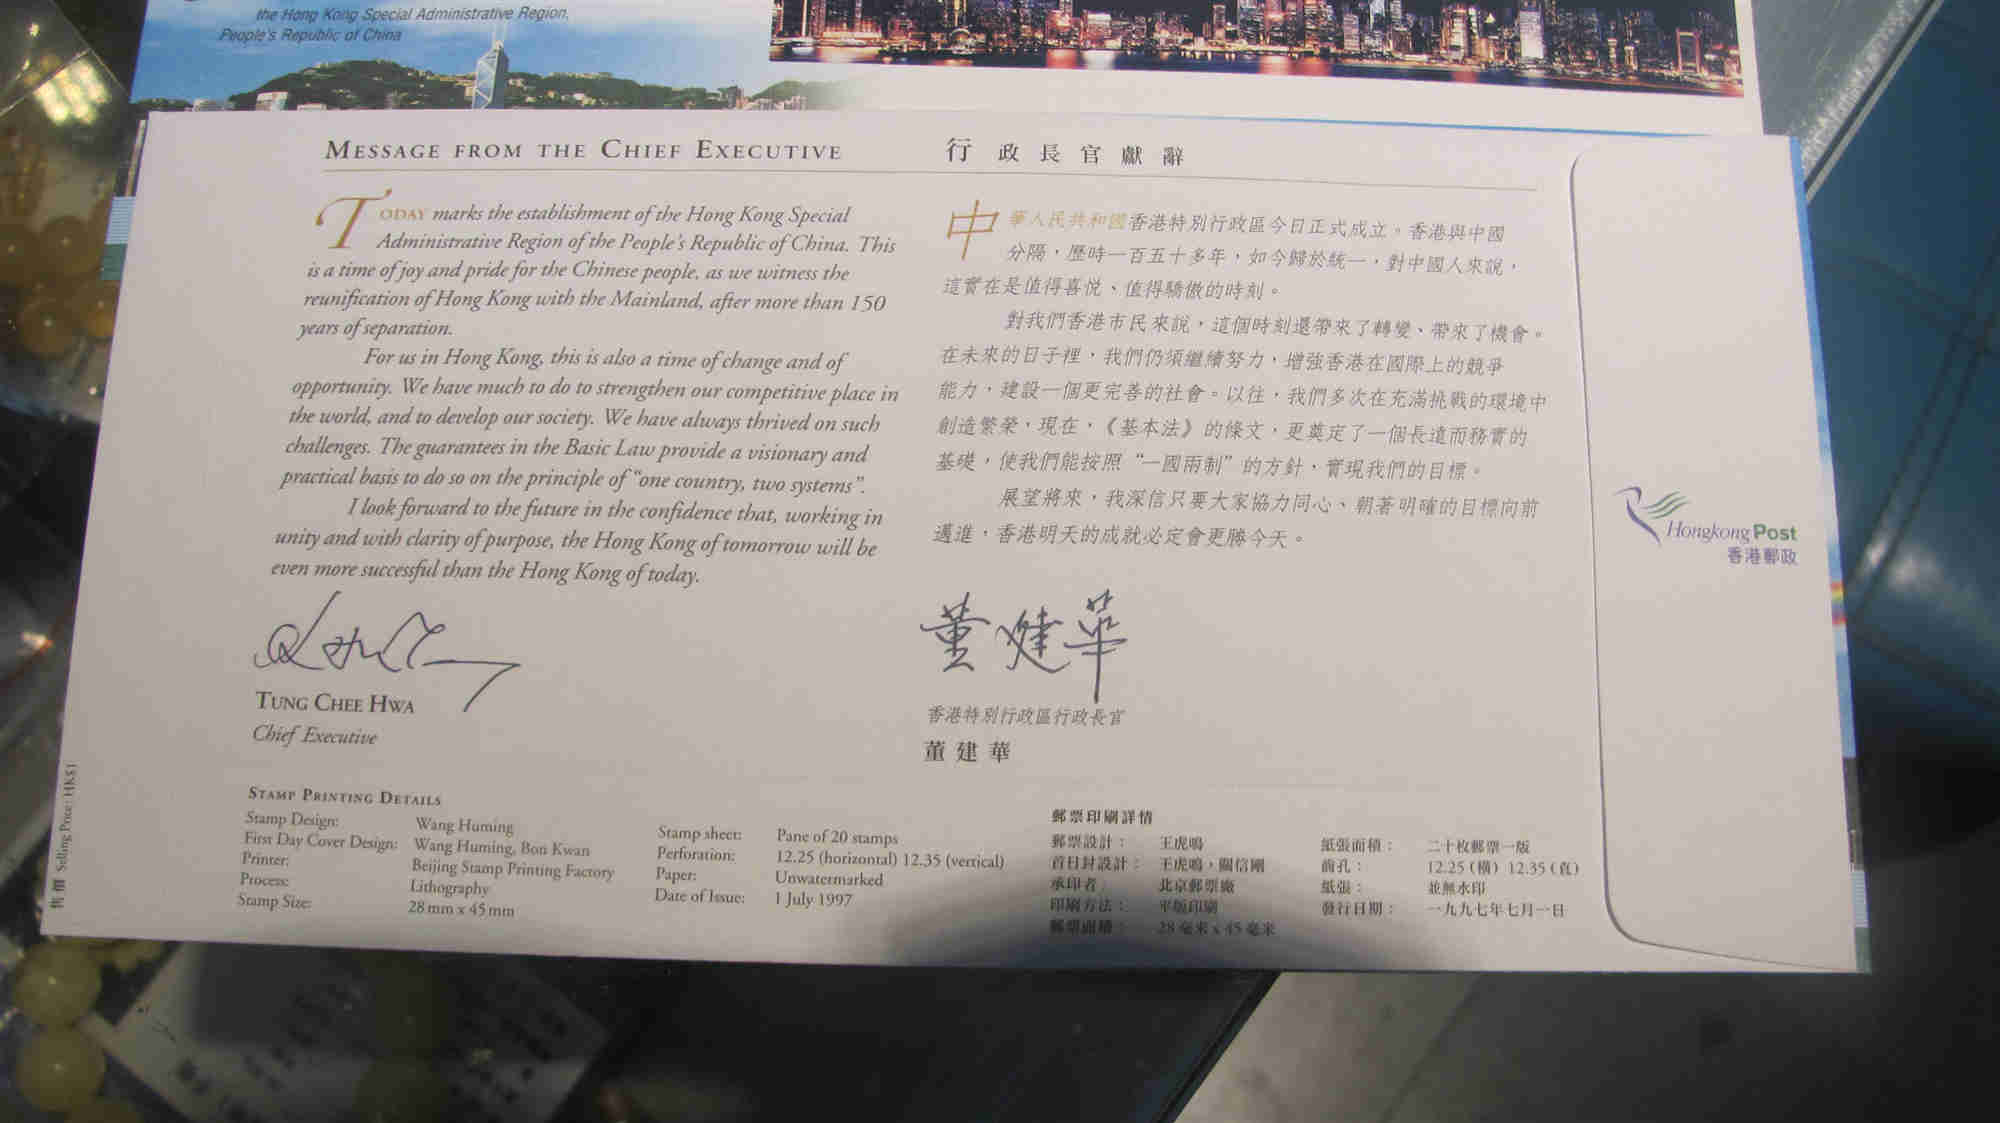 the Hong Kong Special Administrative Region,
People's Republic of China
MESSAGE FROM THE CHIEF EXECUTIVE
TODAY marks the establishment of the Hong Kong Special
Administrative Region of the People's Republic of China. This
is a time of joy and pride for the Chinese people, as we witness the
reunification of Hong Kong with the Mainland, after more than 150
years of separation.
For us in Hong Kong, this is also a time of change and of
opportunity. We have much to do to strengthen our competitive place in
the world, and to develop our society. We have always thrived on such
challenges. The guarantees in the Basic Law provide a visionary and
practical basis to do so on the principle of "one country, two systems".
I look forward to the future in the confidence that, working in
unity and with clarity of purpose, the Hong Kong of tomorrow will be
even more successful than the Hong Kong of today.
TUNG CHEE HWA
Chief Executive
行政長官獻辭
中華人民共和國香港特別行政區今日正式成立。香港與中國
分隔，歷時一百五十多年，如今歸於統一，對中國人來說，
這實在是值得喜悅、值得驕傲的時刻。
對我們香港市民來說，這個時刻還帶來了轉變、帶來了機會。
在未來的日子裡，我們仍須繼續努力，增強香港在國際上的競爭
能力，建設一個更完善的社會。以往，我們多次在充滿挑戰的環境中
創造繁榮，現在，《基本法》的條文，更奠定了一個長遠而務實的
基礎，使我們能按照“一國兩制”的方針，實現我們的目標。
展望將來，我深信只要大家協力同心、朝著明確的目標向前
邁進，香港明天的成就必定會更勝今天。
董建華
香港特別行政區行政長官
董建華
HongkongPost
香港郵政
售價 Selling Price: HK$1
STAMP PRINTING DETAILS
Stamp Design: Wang Huming
First Day Cover Design: Wang Huming, Bon Kwan
Printer: Beijing Stamp Printing Factory
Process: Lithography
Stamp Size: 28 mm x 45 mm
Stamp sheet: Pane of 20 stamps
Perforation: 12.25 (horizontal) 12.35 (vertical)
Paper: Unwatermarked
Date of Issue: 1 July 1997
郵票印刷詳情
郵票設計： 王虎鳴
首日封設計： 王虎鳴，關信剛
承印者： 北京郵票廠
印刷方法： 平版印刷
郵票面積： 28 毫米 x 45 毫米
紙張面積： 二十枚郵票一版
齒孔： 12.25 (橫) 12.35 (直)
紙張： 並無水印
發行日期： 一九九七年七月一日